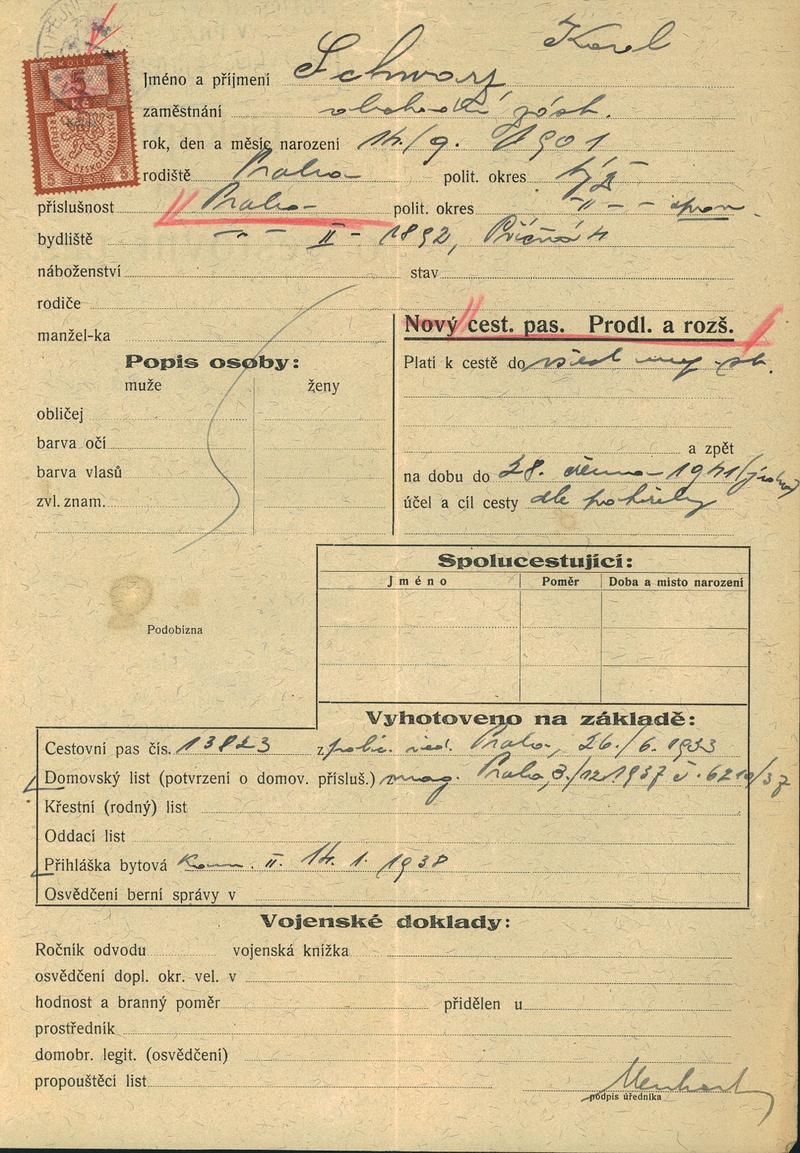 KOLEK
5
Kč
REPUBLIKA ČESKOSLOVENSKÁ
5 5
Jméno a příjmení Schwarz Karel
zaměstnání obchodní zást.
rok, den a měsíc narození 14./9. 1901
rodiště Praha polit. okres
příslušnost Praha polit. okres -"-
bydliště -"- II - 1892, Příčná 4
náboženství stav
rodiče
manžel-ka
Nový cest. pas. Prodl. a rozš.
Popis osoby:
muže ženy
obličej
barva očí
barva vlasů
zvl. znam.
Platí k cestě do všech st.
a zpět
na dobu do 28. 1941
účel a cíl cesty dle potřeby
Spolucestující:
Jméno Poměr Doba a místo narození
Podobizna
Vyhotoveno na základě:
Cestovní pas čís. 13823 z polic. řed. Praha, 26./6. 1933
Domovský list (potvrzení o domov. přísluš.) z mag. Praha, 3./12. 1937 č. 6210/37
Křestní (rodný) list
Oddací list
Přihláška bytová Kom. II. 14. 1. 1938
Osvědčení berní správy v
Vojenské doklady:
Ročník odvodu vojenská knížka
osvědčení dopl. okr. vel. v
hodnost a branný poměr přidělen u
prostředník
domobr. legit. (osvědčení)
propouštěcí list
podpis úředníka